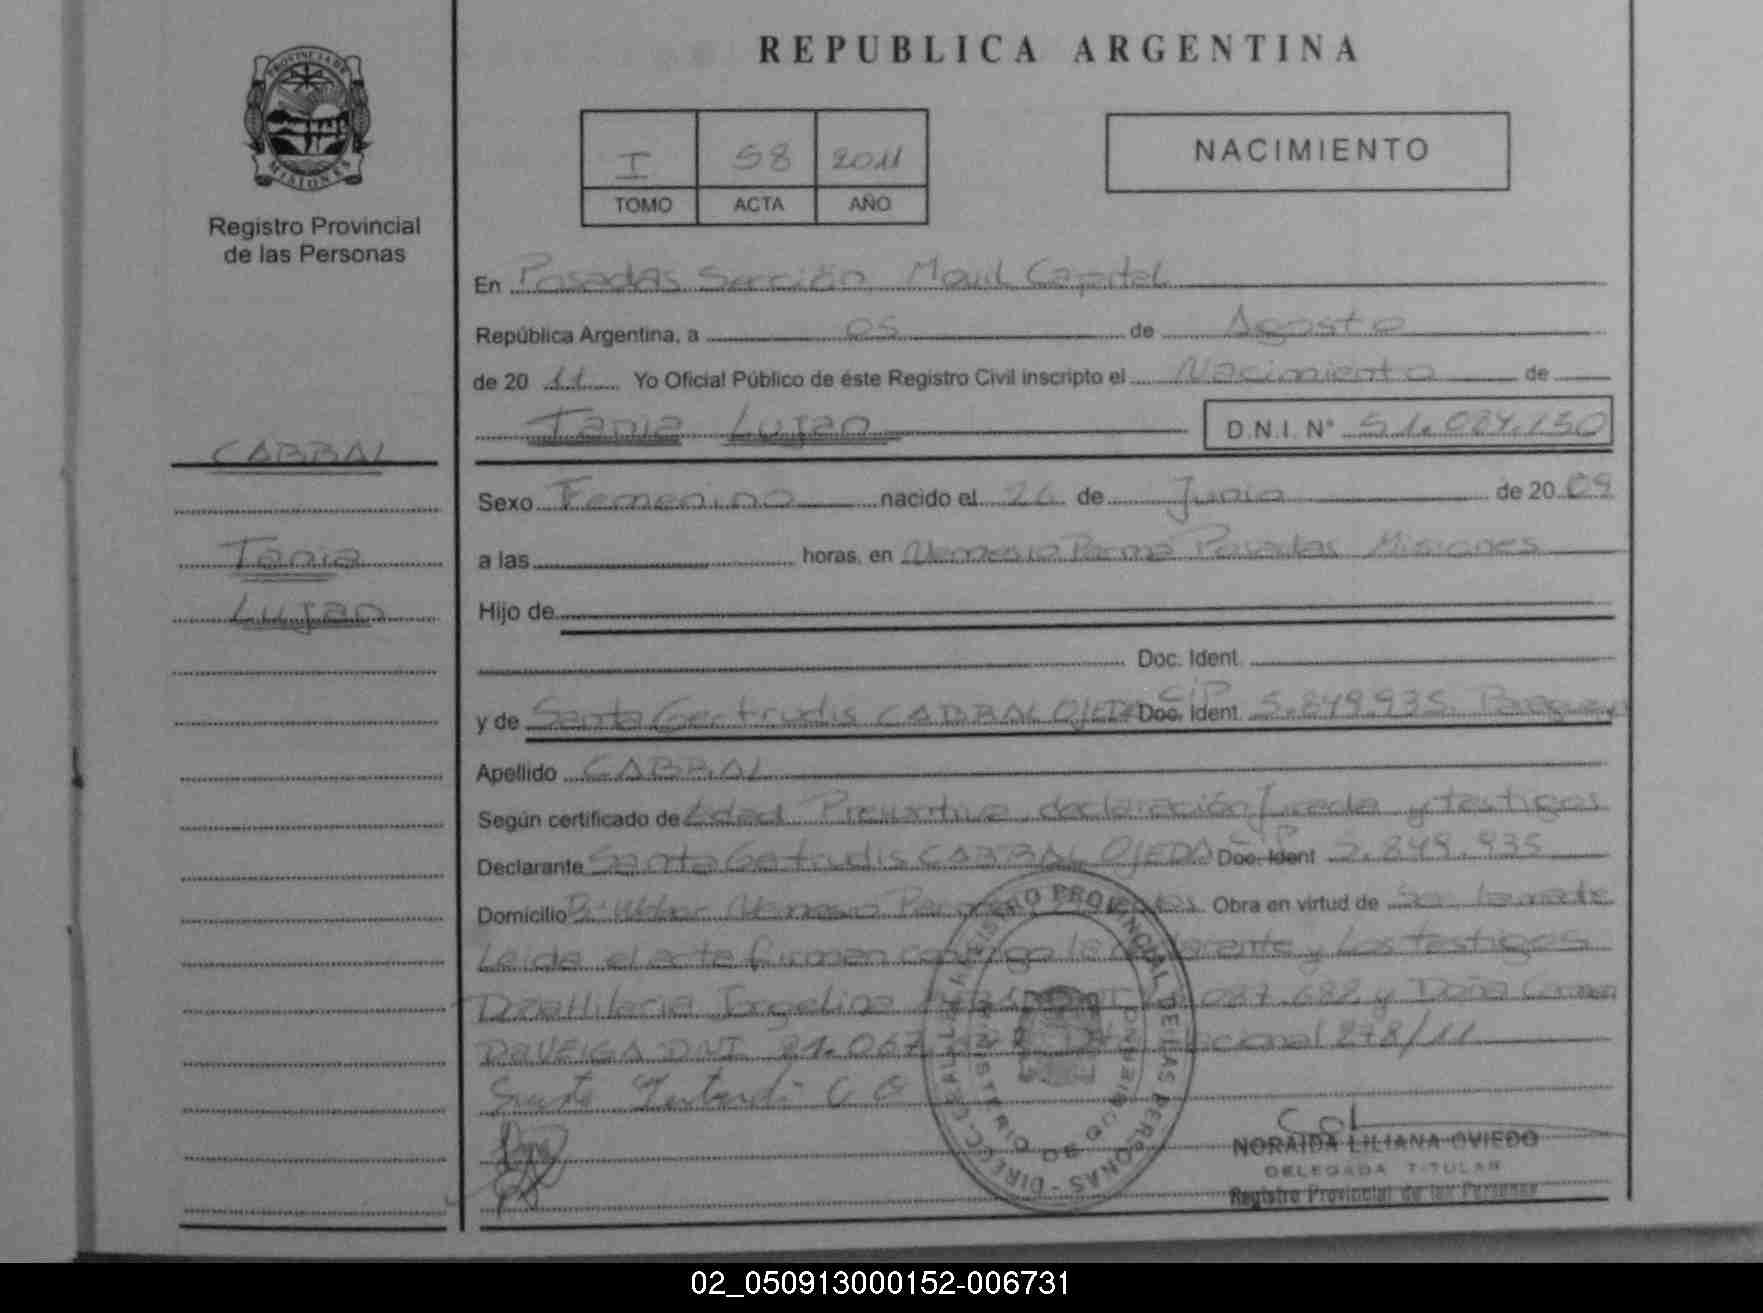 REPUBLICA ARGENTINA
PROVINCIA DE
MISIONES
Registro Provincial
de las Personas
I 58 2011
TOMO ACTA AÑO
NACIMIENTO
En Posadas Sección Movil Capital
República Argentina, a 05 de Agosto
de 20 11 Yo Oficial Público de éste Registro Civil inscripto el Nacimiento de
Tania Lujan D.N.I. N° 51.084.150
CABRAL
Tania
Lujan
Sexo Femenino nacido el 26 de Junio de 20 09
a las horas, en Nemesio Parma Posadas Misiones
Hijo de
Doc. Ident.
CIP
y de Santa Gertrudis CABRAL OJEDA Doc. Ident. 5.849.935. Paraguay
Apellido CABRAL
Según certificado de Edad Presuntiva declaración Jurada y testigos
Declarante Santa Getrudis CABRAL OJEDA Doc. Ident 5.849.935
Domicilio Nemesio Obra en virtud de
Leida el acta firman conmigo la declarante y Los testigos
Jorgelina 087.682 y Doña Carmen
DaVEIGA DNI 21.067 278/11
REGISTRO PROVINCIAL DE LAS PERSONAS - DIREC.
MINISTERIO DE GOBIERNO
NORAIDA LILIANA OVIEDO
DELEGADA TITULAR
Registro Provincial de las Personas
02_050913000152-006731